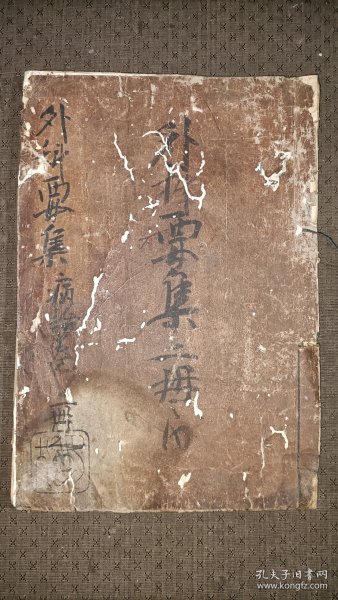 外科要集二冊之内
外科要集
病論
冊之内
孔夫子旧书网
www.kongfz.com